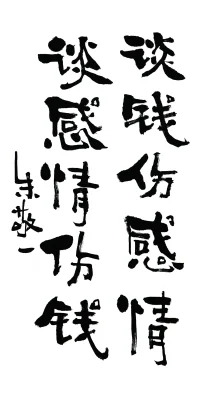 谈钱伤感情
谈感情伤钱
朱敬一